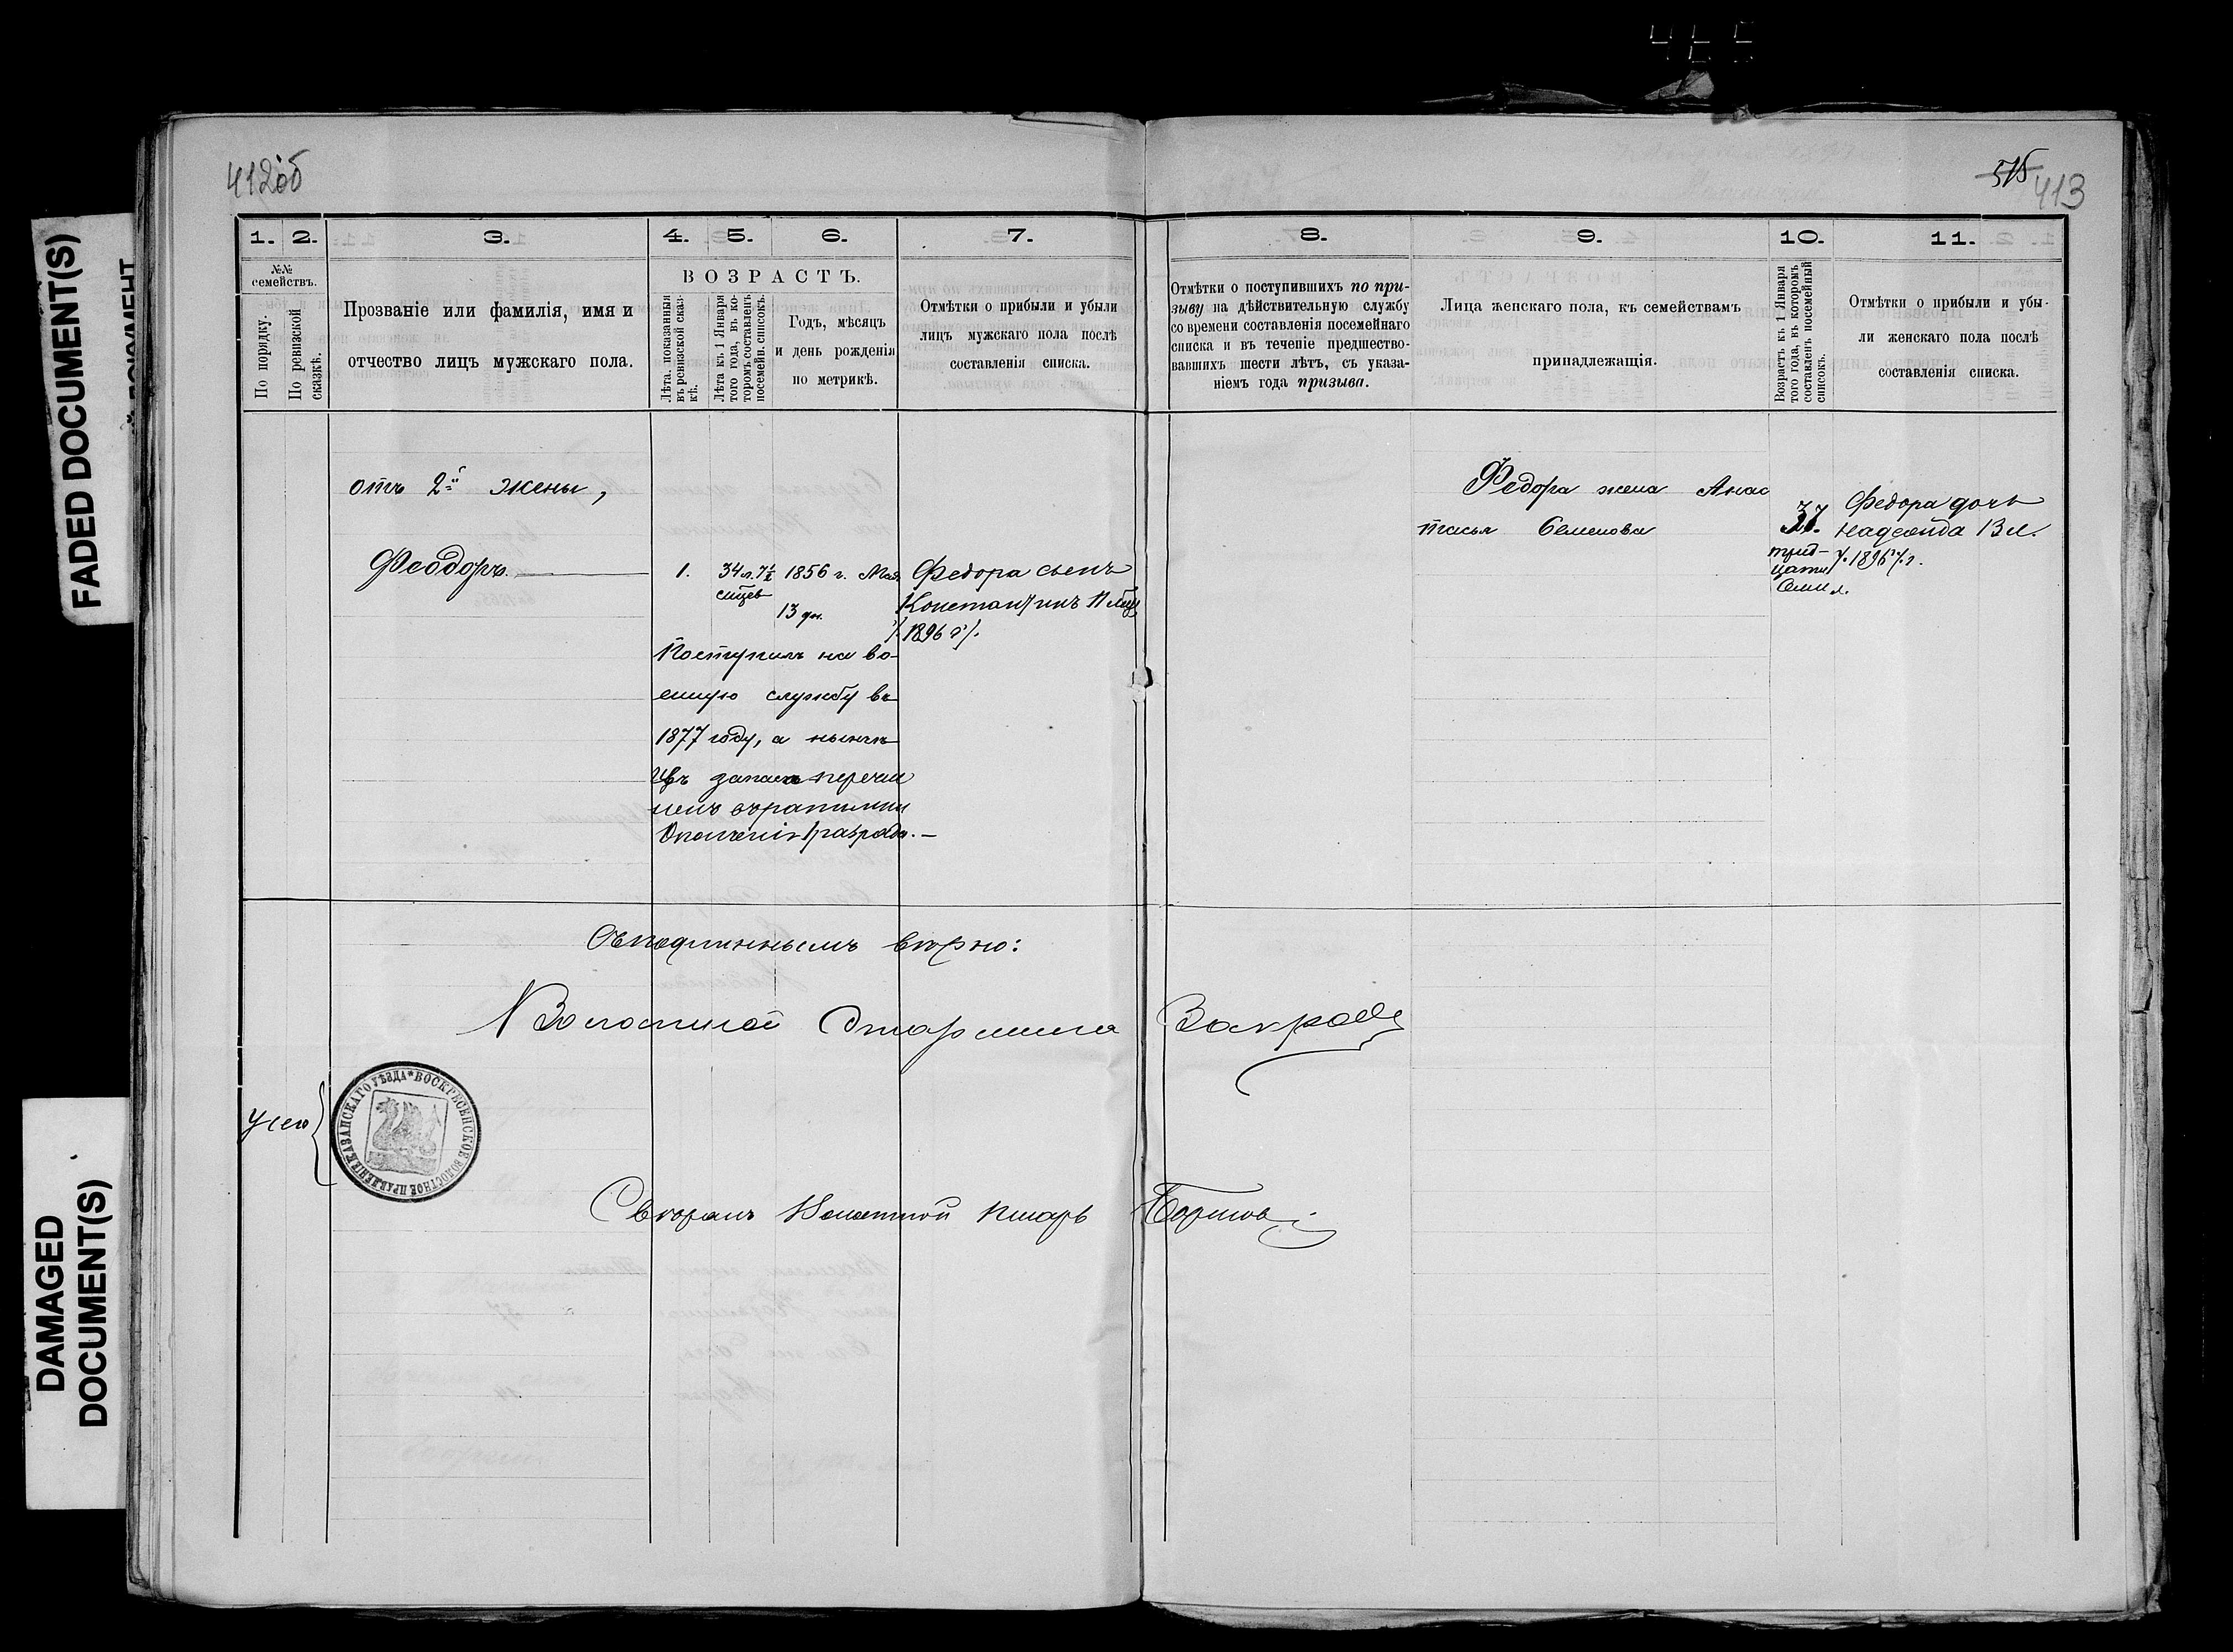 FADED DOCUMENT(S)
DAMAGED
DOCUMENT(S)
412об
515
413
1.
2.
3.
4.
5.
6.
7.
№№
семействъ.
По порядку.
По ревизской
сказкѣ.
Прозваніе или фамилія, имя и
отчество лицъ мужскаго пола.
ВОЗРАСТЪ.
Лѣта, показанныя
въ ревизской сказ-
кѣ.
Лѣта къ 1 Января
того года, въ ко-
торомъ составленъ
посемейн. списокъ.
Годъ, мѣсяцъ
и день рожденія
по метрикѣ.
Отмѣтки о прибыли и убыли
лицъ мужскаго пола послѣ
составленія списка.
отъ 2й жены,
Ѳеодоръ.
1.
34 л. 7½
сяцев
1856 г. Мая
13 дн.
Федора сынъ
Константинъ 11 мѣц
/. 1896 г /.
Поступилъ на во-
енную службу въ
1877 году, а нынѣ
изъ запаса перечи
сленъ въ ратники
Ополченія 1 разряда. —
8.
9.
10.
11.
Отмѣтки о поступившихъ по при-
зыву на дѣйствительную службу
со времени составленія посемейнаго
списка и въ теченіе предшество-
вавшихъ шести лѣтъ, съ указа-
ніемъ года призыва.
Лица женскаго пола, къ семействамъ
принадлежащія.
Возрастъ къ 1 Января
того года, въ которомъ
составленъ посемейный
списокъ.
Отмѣтки о прибыли и убы-
ли женскаго пола послѣ
составленія списка.
Федора жена Анас
тасья Семенова
37.
трид-
цати
семи л.
Федора дочь
Надежда 13 л.
/. 1896 /. г.
Съ подлиннымъ вѣрно:
Волостной Старшина
КАЗАНСКАГО УѢЗДА * ВОСКРЕСЕНСКОЕ ВОЛОСТНОЕ ПРАВЛЕНІЕ
Свѣрялъ Волостной писарь